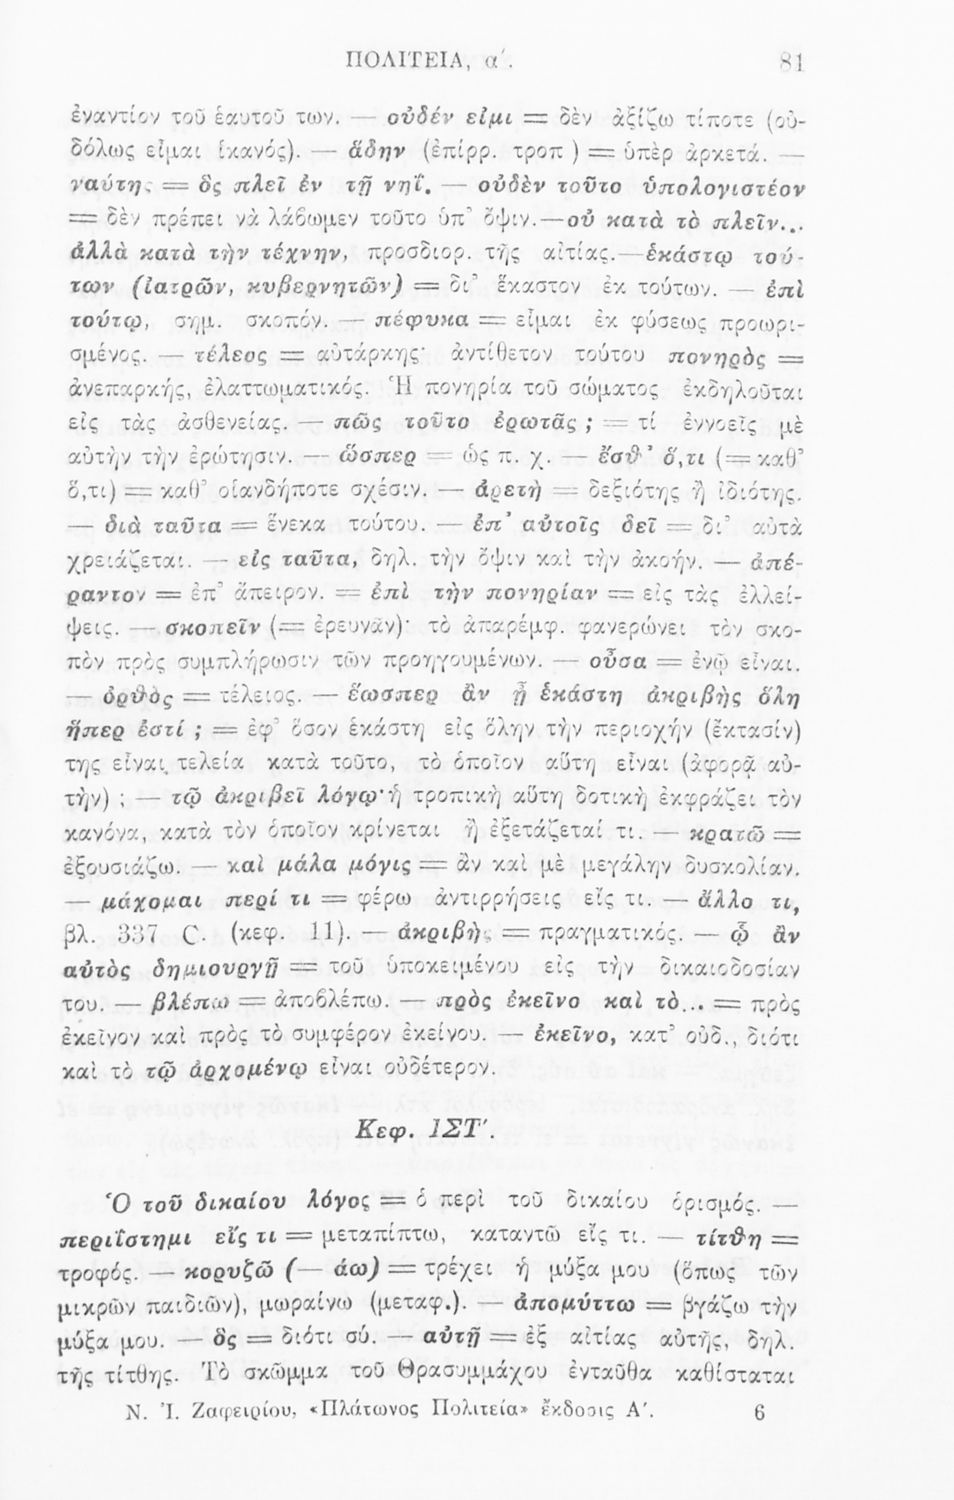 ΠΟΛΙΤΕΙΑ, α΄. 81
ἐναντίον τοῦ ἑαυτοῦ των. — οὐδέν εἰμι = δὲν ἀξίζω τίποτε (οὐ-
δόλως εἶμαι ἱκανός). — ἅδην (ἐπίρρ. τροπ ) = ὑπὲρ ἀρκετά. —
ναύτης = ὃς πλεῖ ἐν τῇ νηΐ. — οὐδὲν τοῦτο ὑπολογιστέον
= δὲν πρέπει νὰ λάβωμεν τοῦτο ὑπ' ὄψιν.—οὐ κατὰ τὸ πλεῖν...
ἀλλὰ κατὰ τὴν τέχνην, προσδιορ. τῆς αἰτίας.—ἑκάστῳ τού-
των (ἰατρῶν, κυβερνητῶν) = δι' ἕκαστον ἐκ τούτων. — ἐπὶ
τούτῳ, σημ. σκοπόν. — πέφυκα = εἶμαι ἐκ φύσεως προωρι-
σμένος. — τέλεος = αὐτάρκης· ἀντίθετον τούτου πονηρὸς =
ἀνεπαρκής, ἐλαττωματικός. Ἡ πονηρία τοῦ σώματος ἐκδηλοῦται
εἰς τὰς ἀσθενείας. — πῶς τοῦτο ἐρωτᾷς ; = τί ἐννοεῖς μὲ
αὐτὴν τὴν ἐρώτησιν. — ὥσπερ = ὡς π. χ. — ἔσθ' ὅ,τι (= καθ'
ὅ,τι) = καθ' οἱανδήποτε σχέσιν. — ἀρετὴ = δεξιότης ἢ ἰδιότης.
— διὰ ταῦτα = ἕνεκα τούτου. — ἐπ' αὐτοῖς δεῖ = δι' αὐτὰ
χρειάζεται. — εἰς ταῦτα, δηλ. τὴν ὄψιν καὶ τὴν ἀκοήν. — ἀπέ-
ραντον = ἐπ' ἄπειρον. = ἐπὶ τὴν πονηρίαν = εἰς τὰς ἐλλεί-
ψεις. — σκοπεῖν (= ἐρευνᾶν)· τὸ ἀπαρέμφ. φανερώνει τὸν σκο-
πὸν πρὸς συμπλήρωσιν τῶν προηγουμένων. — οὖσα = ἐνῷ εἶναι.
— ὀρθὸς = τέλειος. — ἕωσπερ ἂν ᾖ ἑκάστη ἀκριβὴς ὅλη
ἥπερ ἐστί ; = ἐφ' ὅσον ἑκάστη εἰς ὅλην τὴν περιοχήν (ἔκτασίν)
της εἶναι τελεία κατὰ τοῦτο, τὸ ὁποῖον αὕτη εἶναι (ἀφορᾷ αὐ-
τὴν) ; — τῷ ἀκριβεῖ λόγῳ·ἡ τροπικὴ αὕτη δοτικὴ ἐκφράζει τὸν
κανόνα, κατὰ τὸν ὁποῖον κρίνεται ἢ ἐξετάζεταί τι. — κρατῶ =
ἐξουσιάζω. — καὶ μάλα μόγις = ἂν καὶ μὲ μεγάλην δυσκολίαν.
— μάχομαι περί τι = φέρω ἀντιρρήσεις εἴς τι. — ἄλλο τι,
βλ. 337 C. (κεφ. 11). — ἀκριβὴς = πραγματικός. — ᾧ ἂν
αὐτὸς δημιουργῇ = τοῦ ὑποκειμένου εἰς τὴν δικαιοδοσίαν
του. — βλέπω = ἀποβλέπω. — πρὸς ἐκεῖνο καὶ τὸ... = πρὸς
ἐκεῖνον καὶ πρὸς τὸ συμφέρον ἐκείνου. — ἐκεῖνο, κατ' οὐδ., διότι
καὶ τὸ τῷ ἀρχομένῳ εἶναι οὐδέτερον.
Κεφ. ΙΣΤ΄.
Ὁ τοῦ δικαίου λόγος = ὁ περὶ τοῦ δικαίου ὁρισμός. —
περιΐστημι εἴς τι = μεταπίπτω, καταντῶ εἴς τι. — τίτθη =
τροφός. — κορυζῶ (— άω) = τρέχει ἡ μύξα μου (ὅπως τῶν
μικρῶν παιδιῶν), μωραίνω (μεταφ.). — ἀπομύττω = βγάζω τὴν
μύξα μου. — ὃς = διότι σύ. — αὐτῇ = ἐξ αἰτίας αὐτῆς, δηλ.
τῆς τίτθης. Τὸ σκῶμμα τοῦ Θρασυμμάχου ἐνταῦθα καθίσταται
Ν. Ἰ. Ζαφειρίου, «Πλάτωνος Πολιτεία» ἔκδοσις Α΄. 6